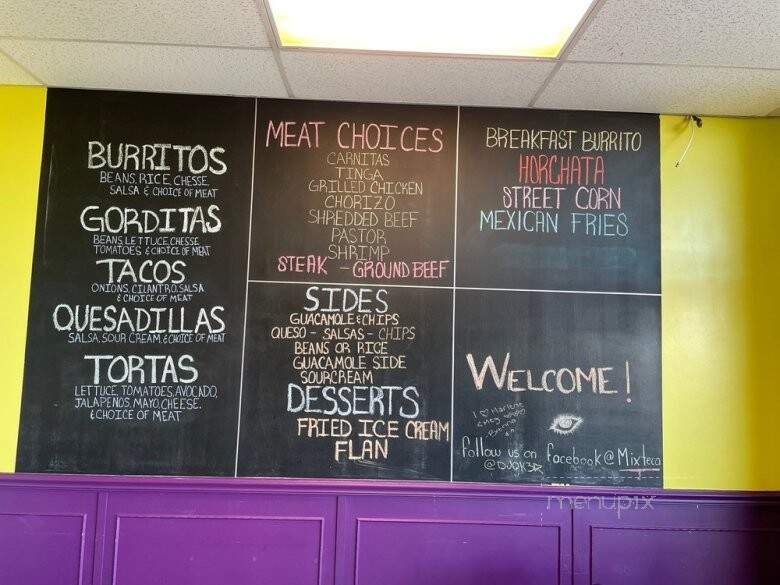 BURRITOS
BEANS, RICE, CHESSE,
SALSA & CHOICE OF MEAT
GORDITAS
BEANS, LETTUCE, CHESSE
TOMATOES & CHOICE OF MEAT
TACOS
ONIONS, CILANTRO, SALSA
& CHOICE OF MEAT
QUESADILLAS
SALSA, SOUR CREAM, & CHOICE OF MEAT
TORTAS
LETTUCE, TOMATOES, AVOCADO,
JALAPENOS, MAYO, CHEESE,
& CHOICE OF MEAT
MEAT CHOICES
CARNITAS
TINGA
GRILLED CHICKEN
CHORIZO
SHREDDED BEEF
PASTOR
SHRIMP
STEAK - GROUND BEEF
SIDES
GUACAMOLE & CHIPS
QUESO - SALSAS - CHIPS
BEANS OR RICE
GUACAMOLE SIDE
SOURCREAM
DESSERTS
FRIED ICE CREAM
FLAN
BREAKFAST BURRITO
HORCHATA
STREET CORN
MEXICAN FRIES
WELCOME!
I ♡
follow us on facebook @ Mixteca
menupix